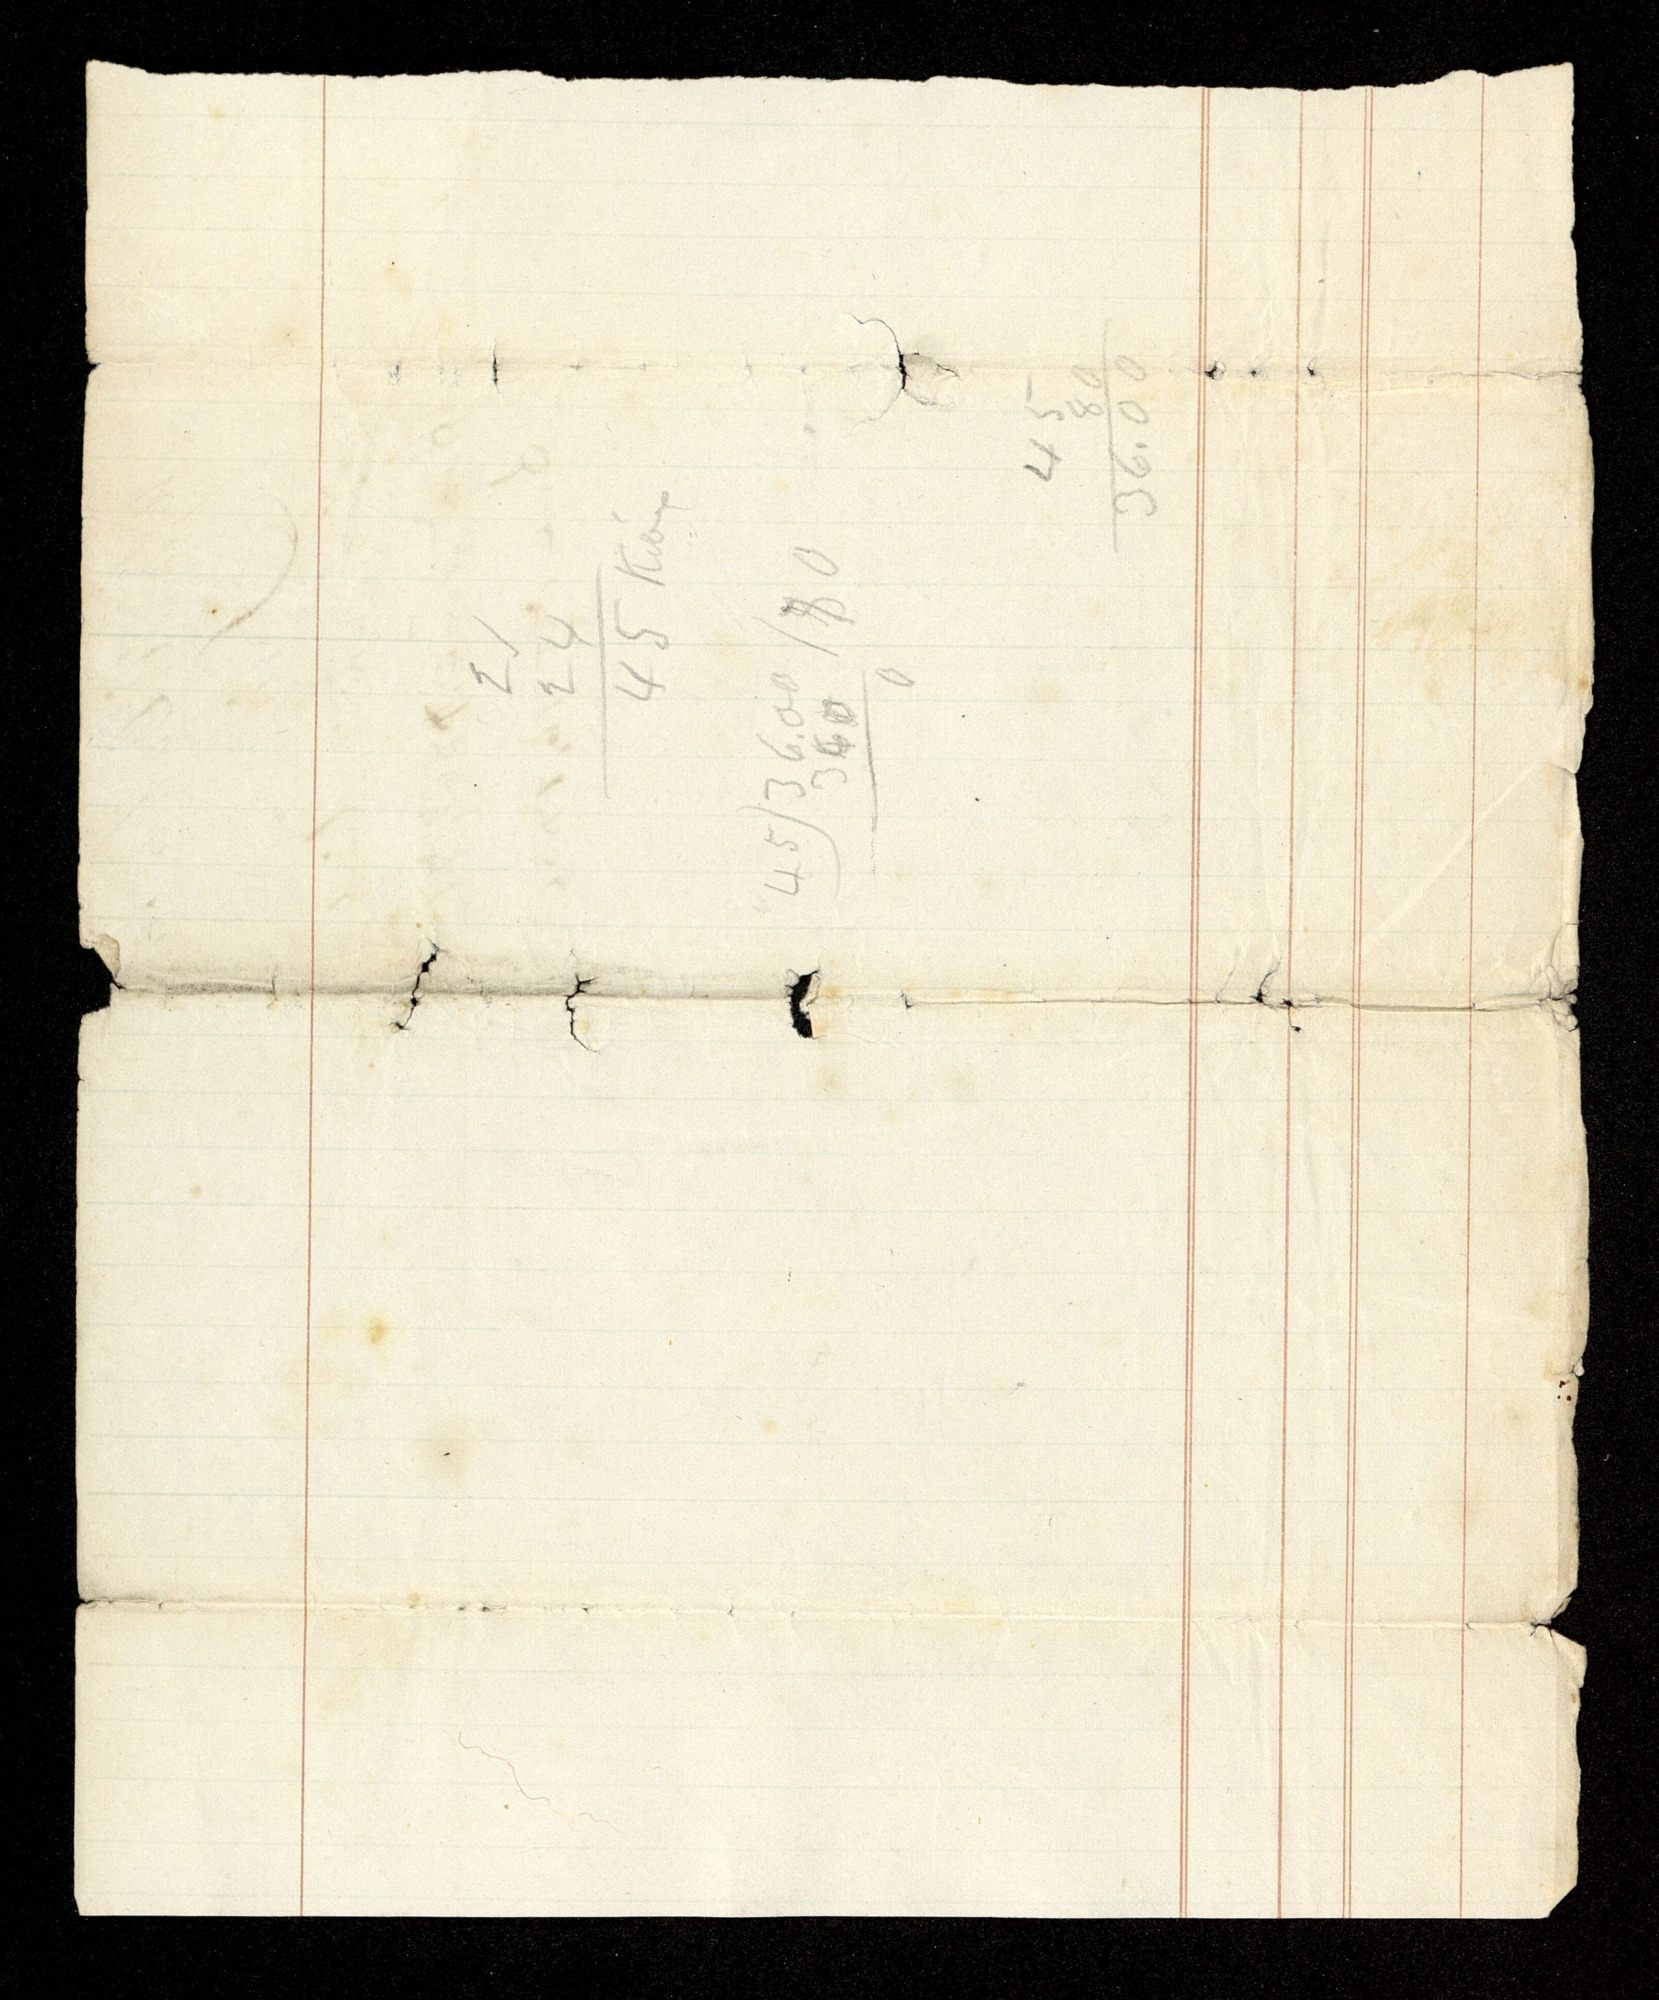 21
24
45
45)36.00/80
360
0
45
80
36.00